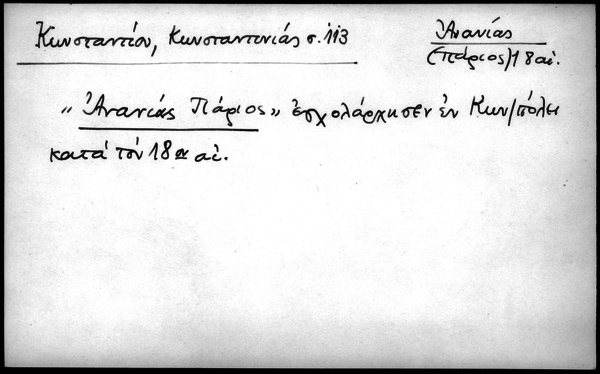 Κωνσταντίου, Κωνσταντινιάς σ. 113
Ἀνανίας
(Πάριος) 18 αἰ.
„Ἀνανίας Πάριος„ ἐσχολάρχησεν ἐν Κων/πόλει
κατά τόν 18ον αἰ.